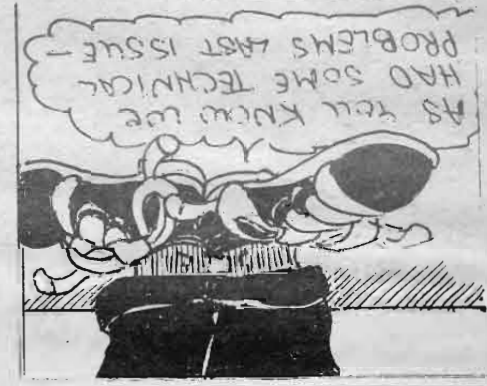 AS YOU KNOW WE
HAD SOME TECHNICAL
PROBLEMS LAST ISSUE –